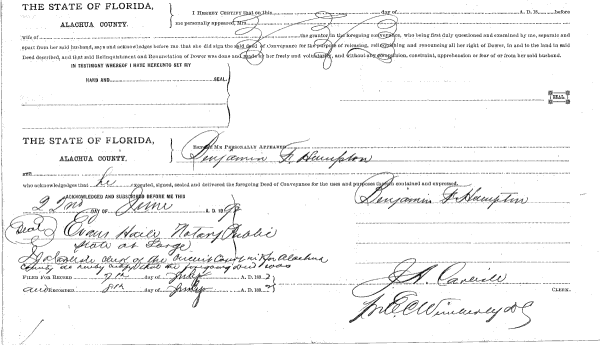 THE STATE OF FLORIDA,
ALACHUA COUNTY.
I HEREBY CERTIFY that on this day of A. D. 18 before
me personally appeared, Mrs
wife of the grantor in the foregoing conveyance, who being first duly questioned and examined by me, separate and
apart from her said husband, says and acknowledges before me that she did sign the said Deed of Conveyance for the purpose of releasing, relinquishing and renouncing all her right of Dower, in and to the land in said
Deed described, and that said Relinquishment and Renunciation of Dower was done and made by her freely and voluntarily, and without any compulsion, constraint, apprehension or fear of or from her said husband.
IN TESTIMONY WHEREOF I HAVE HEREUNTO SET MY
HAND AND SEAL,
SEAL
THE STATE OF FLORIDA,
ALACHUA COUNTY.
BEFORE ME PERSONALLY APPEARED
Benjamin F. Hampton
AND
who acknowledges that he executed, signed, sealed and delivered the foregoing Deed of Conveyance for the uses and purposes therein contained and expressed.
ACKNOWLEDGED AND SUBSCRIBED BEFORE ME THIS
22nd DAY OF June A. D. 18
Benjamin F. Hampton
Seal Evans Haile Notary Public
State at Large
clerk of the Circuit Court in & for Alachua
County do hereby certify that the foregoing deed was
FILED FOR RECORD 7th day of July A. D. 189
and RECORDED 8th day of July A. D. 189
J. A. Carlisle
CLERK.
Wimberley D C